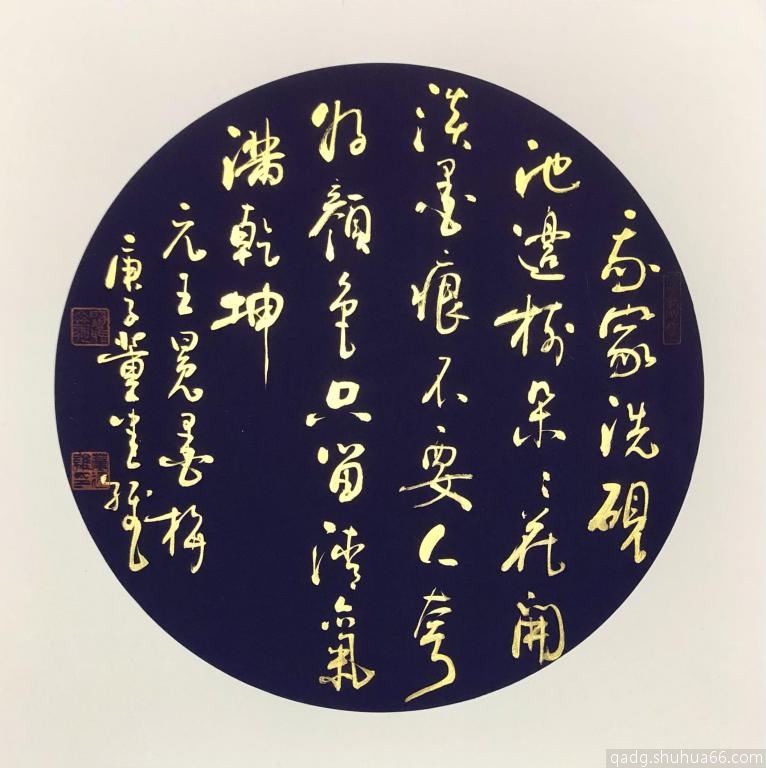 我家洗硯
池邊樹朵〻花開
淡墨痕不要人夸
好顏色只留清氣
滿乾坤
元王冕墨梅
庚子董
qadg.shuhua66.com